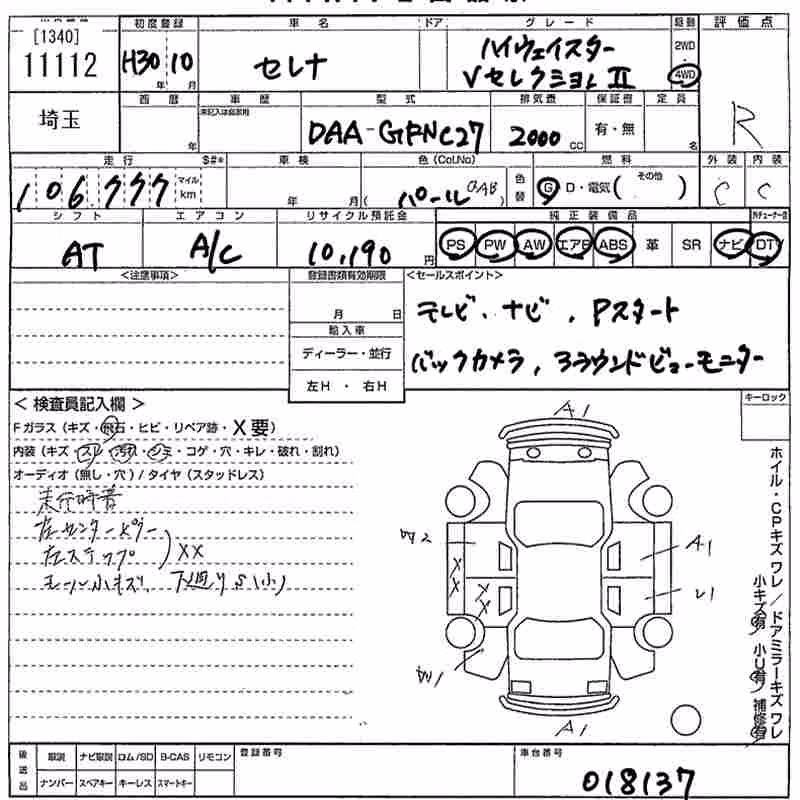 [1340]
11112
初度登録 車名 ドア グレード 駆動 評価点
H30年 10月 セレナ ハイウェイスター Vセレクション II 2WD・4WD R
埼玉
西暦 車歴 型式 排気量 保証書 定員
年 未記入は自家用 DAA-GFNC27 2000cc 有・無 名
走行 S#* 車検 色(Col.No) 色替 燃料 外装 内装
106,777 マイル km 年 月 パール(QAB) G D・電気( その他 ) C C
シフト エアコン リサイクル預託金 純正装備品
AT A/C 10,190円 PS PW AW エアB ABS 革 SR ナビ DTV
<注意事項> 登録書類有効期限 <セールスポイント>
月 日 テレビ、ナビ、Pスタート
輸入車
ディーラー・並行 バックカメラ、アラウンドビューモニター
左H・右H
<検査員記入欄> キーロック
Fガラス(キズ・飛石・ヒビ・リペア跡・X要)
内装(キズ・スレ・汚れ・シミ・コゲ・穴・キレ・破れ・割れ)
オーディオ(無し・穴)/タイヤ(スタッドレス)
走行時音
左センターピラー
左ステップ XX
モール小キズ、下廻りS(小)
A1
A1
A1
ホイル・CPキズ ワレ/ドアミラーキズ ワレ
小キズ有 小U有 補修有
後送品 取説 ナビ取説 ロム/SD B-CAS リモコン 登録番号 車台番号
ナンバー スペアキー キーレス スマートキー 018137